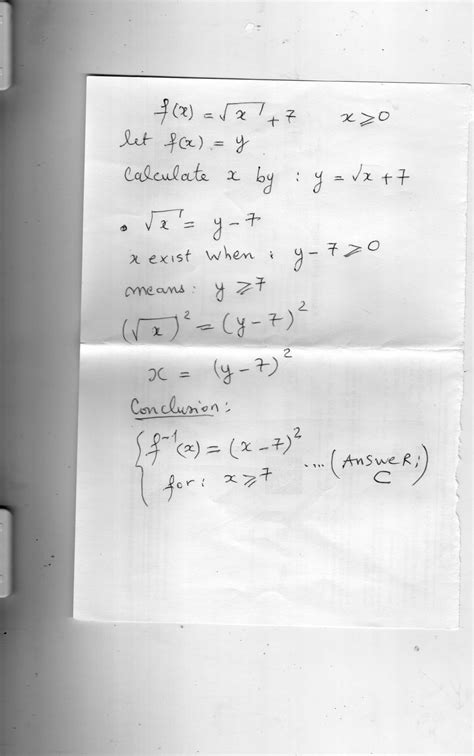 f(x) = √x + 7    x ⩾ 0
let f(x) = y
Calculate x by : y = √x + 7
• √x = y - 7
x exist when : y - 7 ⩾ 0
means: y ⩾ 7
(√x)² = (y - 7)²
x = (y - 7)²
Conclusion:
{ f⁻¹(x) = (x - 7)²
for: x ⩾ 7 .... (ANSWER; C)